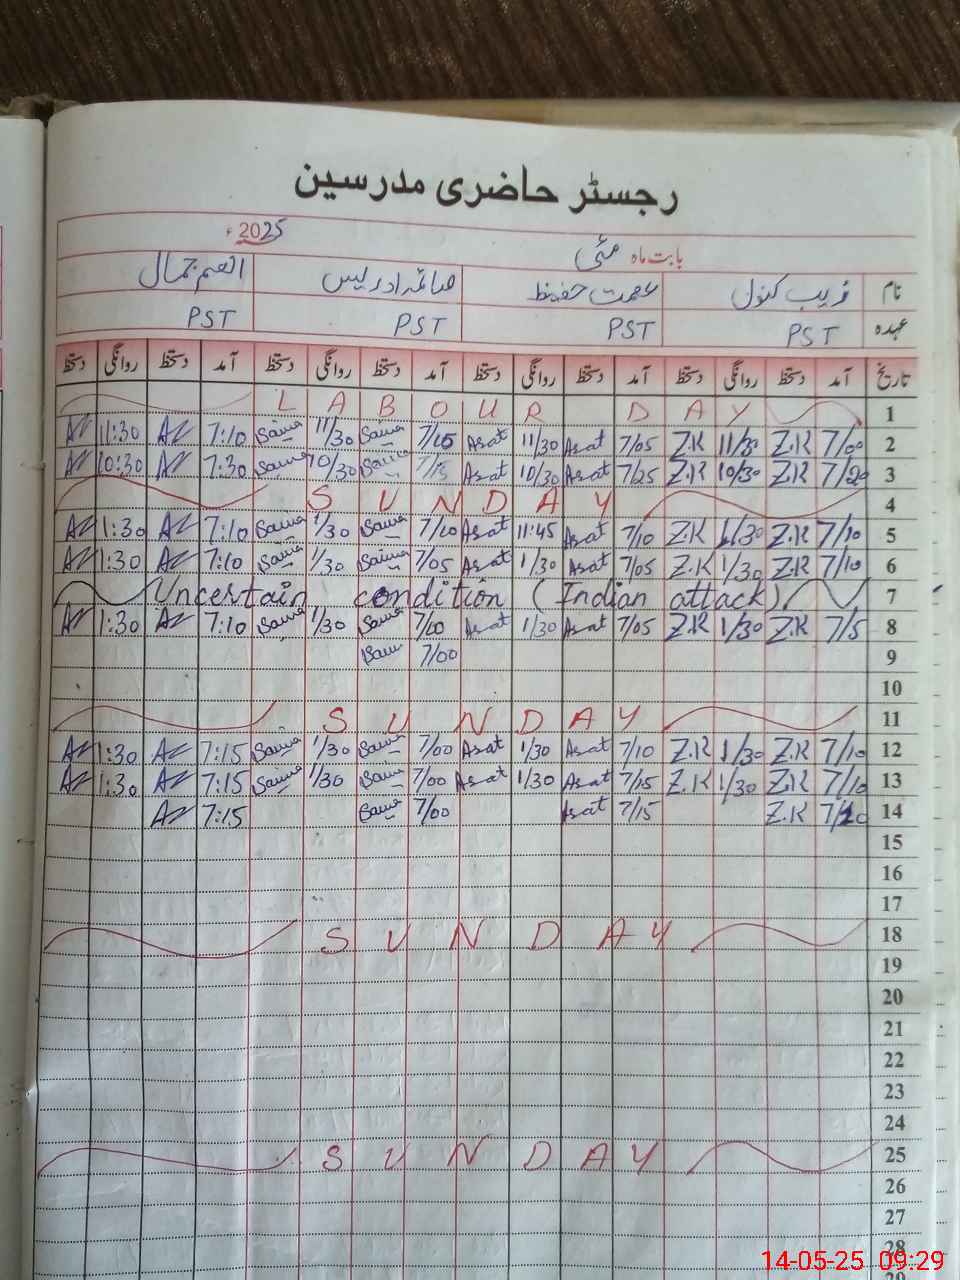 رجسٹر حاضری مدرسین
بابت ماہ مئی 2025ء
نام زیب کنول عصمت حفیظ صائمہ ادریس انعم جمال
عہدہ PST PST PST PST
تاریخ آمد دستخط روانگی دستخط آمد دستخط روانگی دستخط آمد دستخط روانگی دستخط آمد دستخط روانگی دستخط
LABOUR DAY 1
AZ 11:30 AZ 7:10 Saima 11/30 Saima 7/05 Asat 11/30 Asat 7/05 Z.K 11/30 Z.K 7/00 2
AZ 10:30 AZ 7:30 Saima 10/30 Saima 7/15 Asat 10/30 Asat 7/25 Z.K 10/30 Z.K 7/20 3
SUNDAY 4
AZ 1:30 AZ 7:10 Saima 1/30 Saima 7/10 Asat 11:45 Asat 7/10 Z.K 1/30 Z.K 7/10 5
AZ 1:30 AZ 7:10 Saima 1/30 Saima 7/05 Asat 1/30 Asat 7/05 Z.K 1/30 Z.K 7/10 6
Uncertain condition (Indian attack) 7
AZ 1:30 AZ 7:10 Saima 1/30 Saima 7/00 Asat 1/30 Asat 7/05 Z.K 1/30 Z.K 7/5 8
7/00 9
10
SUNDAY 11
AZ 1:30 AZ 7:15 Saima 1/30 Saima 7/00 Asat 1/30 Asat 7/10 Z.K 1/30 Z.K 7/10 12
AZ 1:30 AZ 7:15 Saima 1/30 Saima 7/00 Asat 1/30 Asat 7/15 Z.K 1/30 Z.K 7/10 13
AZ 7:15 Saima 7/00 Asat 7/15 Z.K 14
15
16
17
SUNDAY 18
19
20
21
22
23
24
SUNDAY 25
26
27
28
14-05-25 09:29